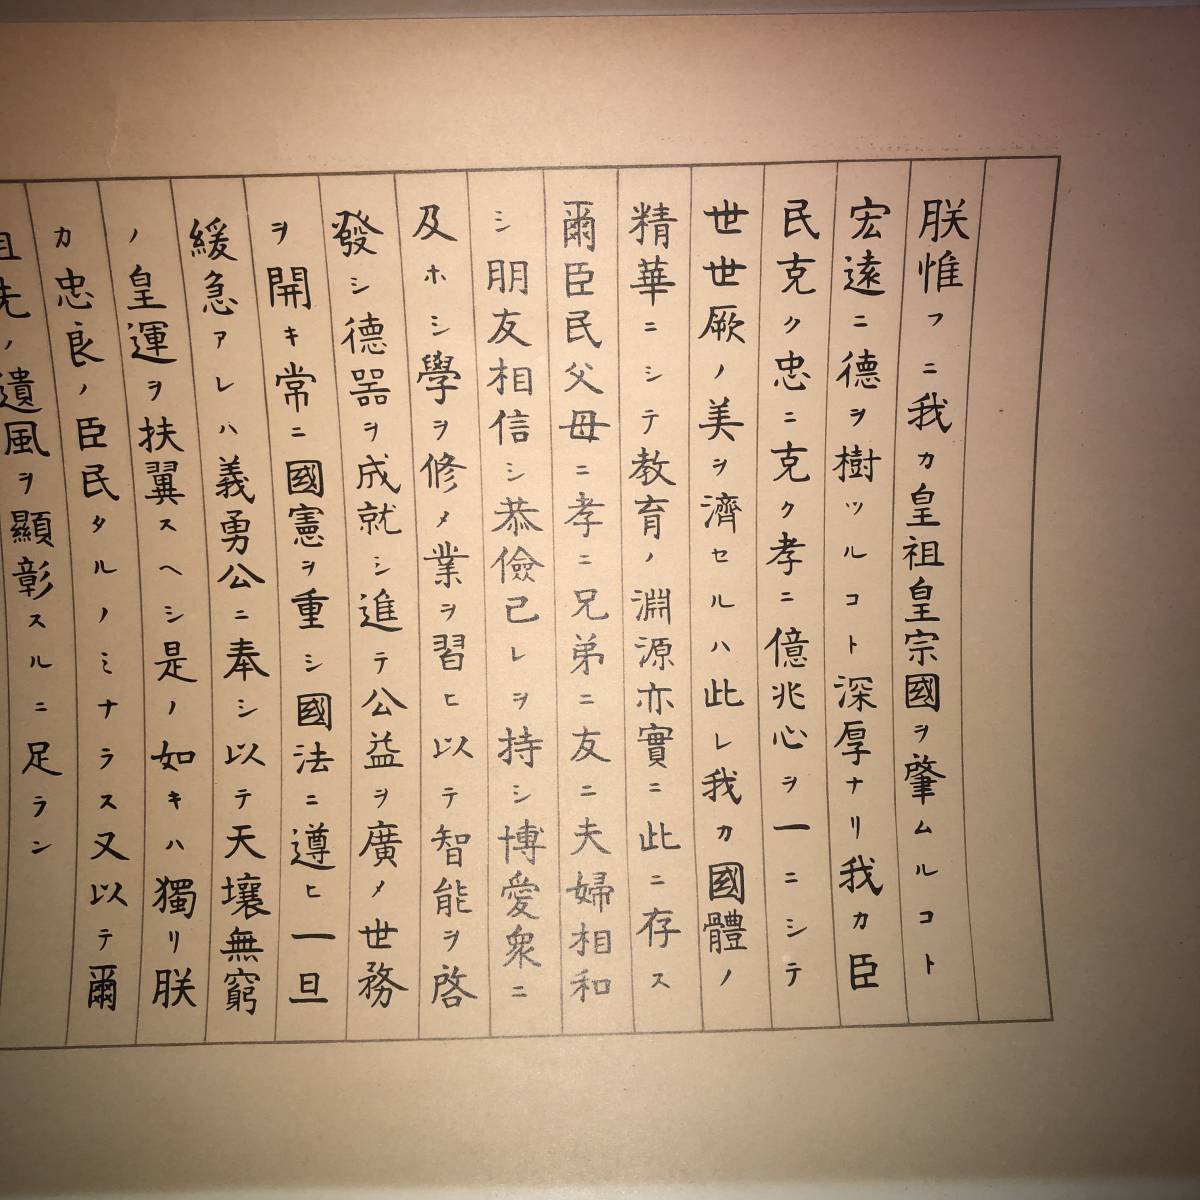 朕惟フニ我カ皇祖皇宗國ヲ肇ムルコト
宏遠ニ德ヲ樹ツルコト深厚ナリ我カ臣
民克ク忠ニ克ク孝ニ億兆心ヲ一ニシテ
世世厥ノ美ヲ濟セルハ此レ我カ國體ノ
精華ニシテ教育ノ淵源亦實ニ此ニ存ス
爾臣民父母ニ孝ニ兄弟ニ友ニ夫婦相和
シ朋友相信シ恭儉己レヲ持シ博愛衆ニ
及ホシ學ヲ修メ業ヲ習ヒ以テ智能ヲ啓
發シ德器ヲ成就シ進テ公益ヲ廣メ世務
ヲ開キ常ニ國憲ヲ重シ國法ニ遵ヒ一旦
緩急アレハ義勇公ニ奉シ以テ天壤無窮
ノ皇運ヲ扶翼スヘシ是ノ如キハ獨リ朕
カ忠良ノ臣民タルノミナラス又以テ爾
祖先ノ遺風ヲ顯彰スルニ足ラン